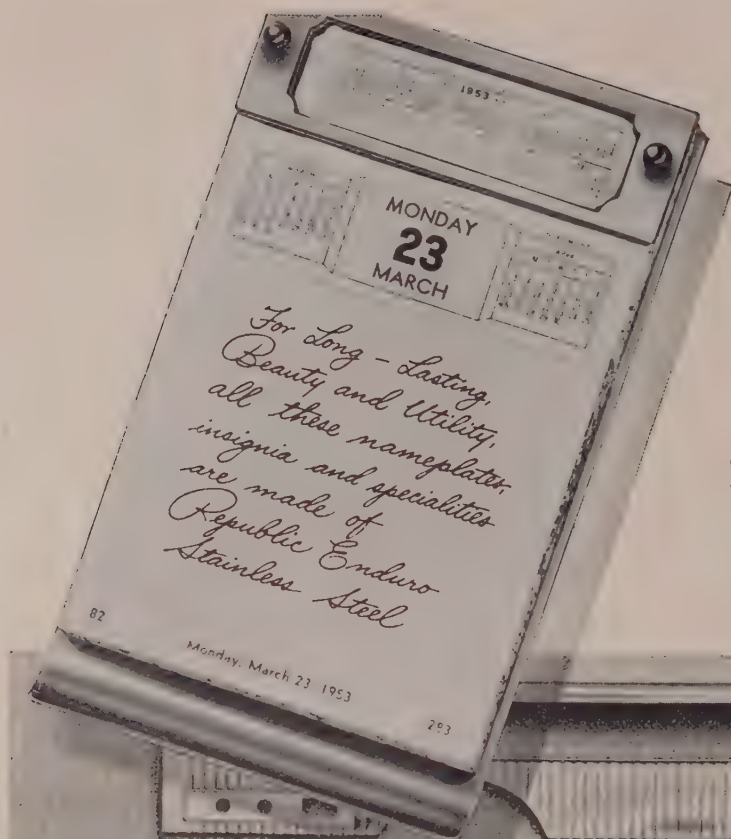 1953
MONDAY
23
MARCH
For Long - Lasting,
Beauty and Utility,
all these nameplates,
insignia and specialities
are made of
Republic Enduro
Stainless Steel
82
Monday, March 23 1953
283